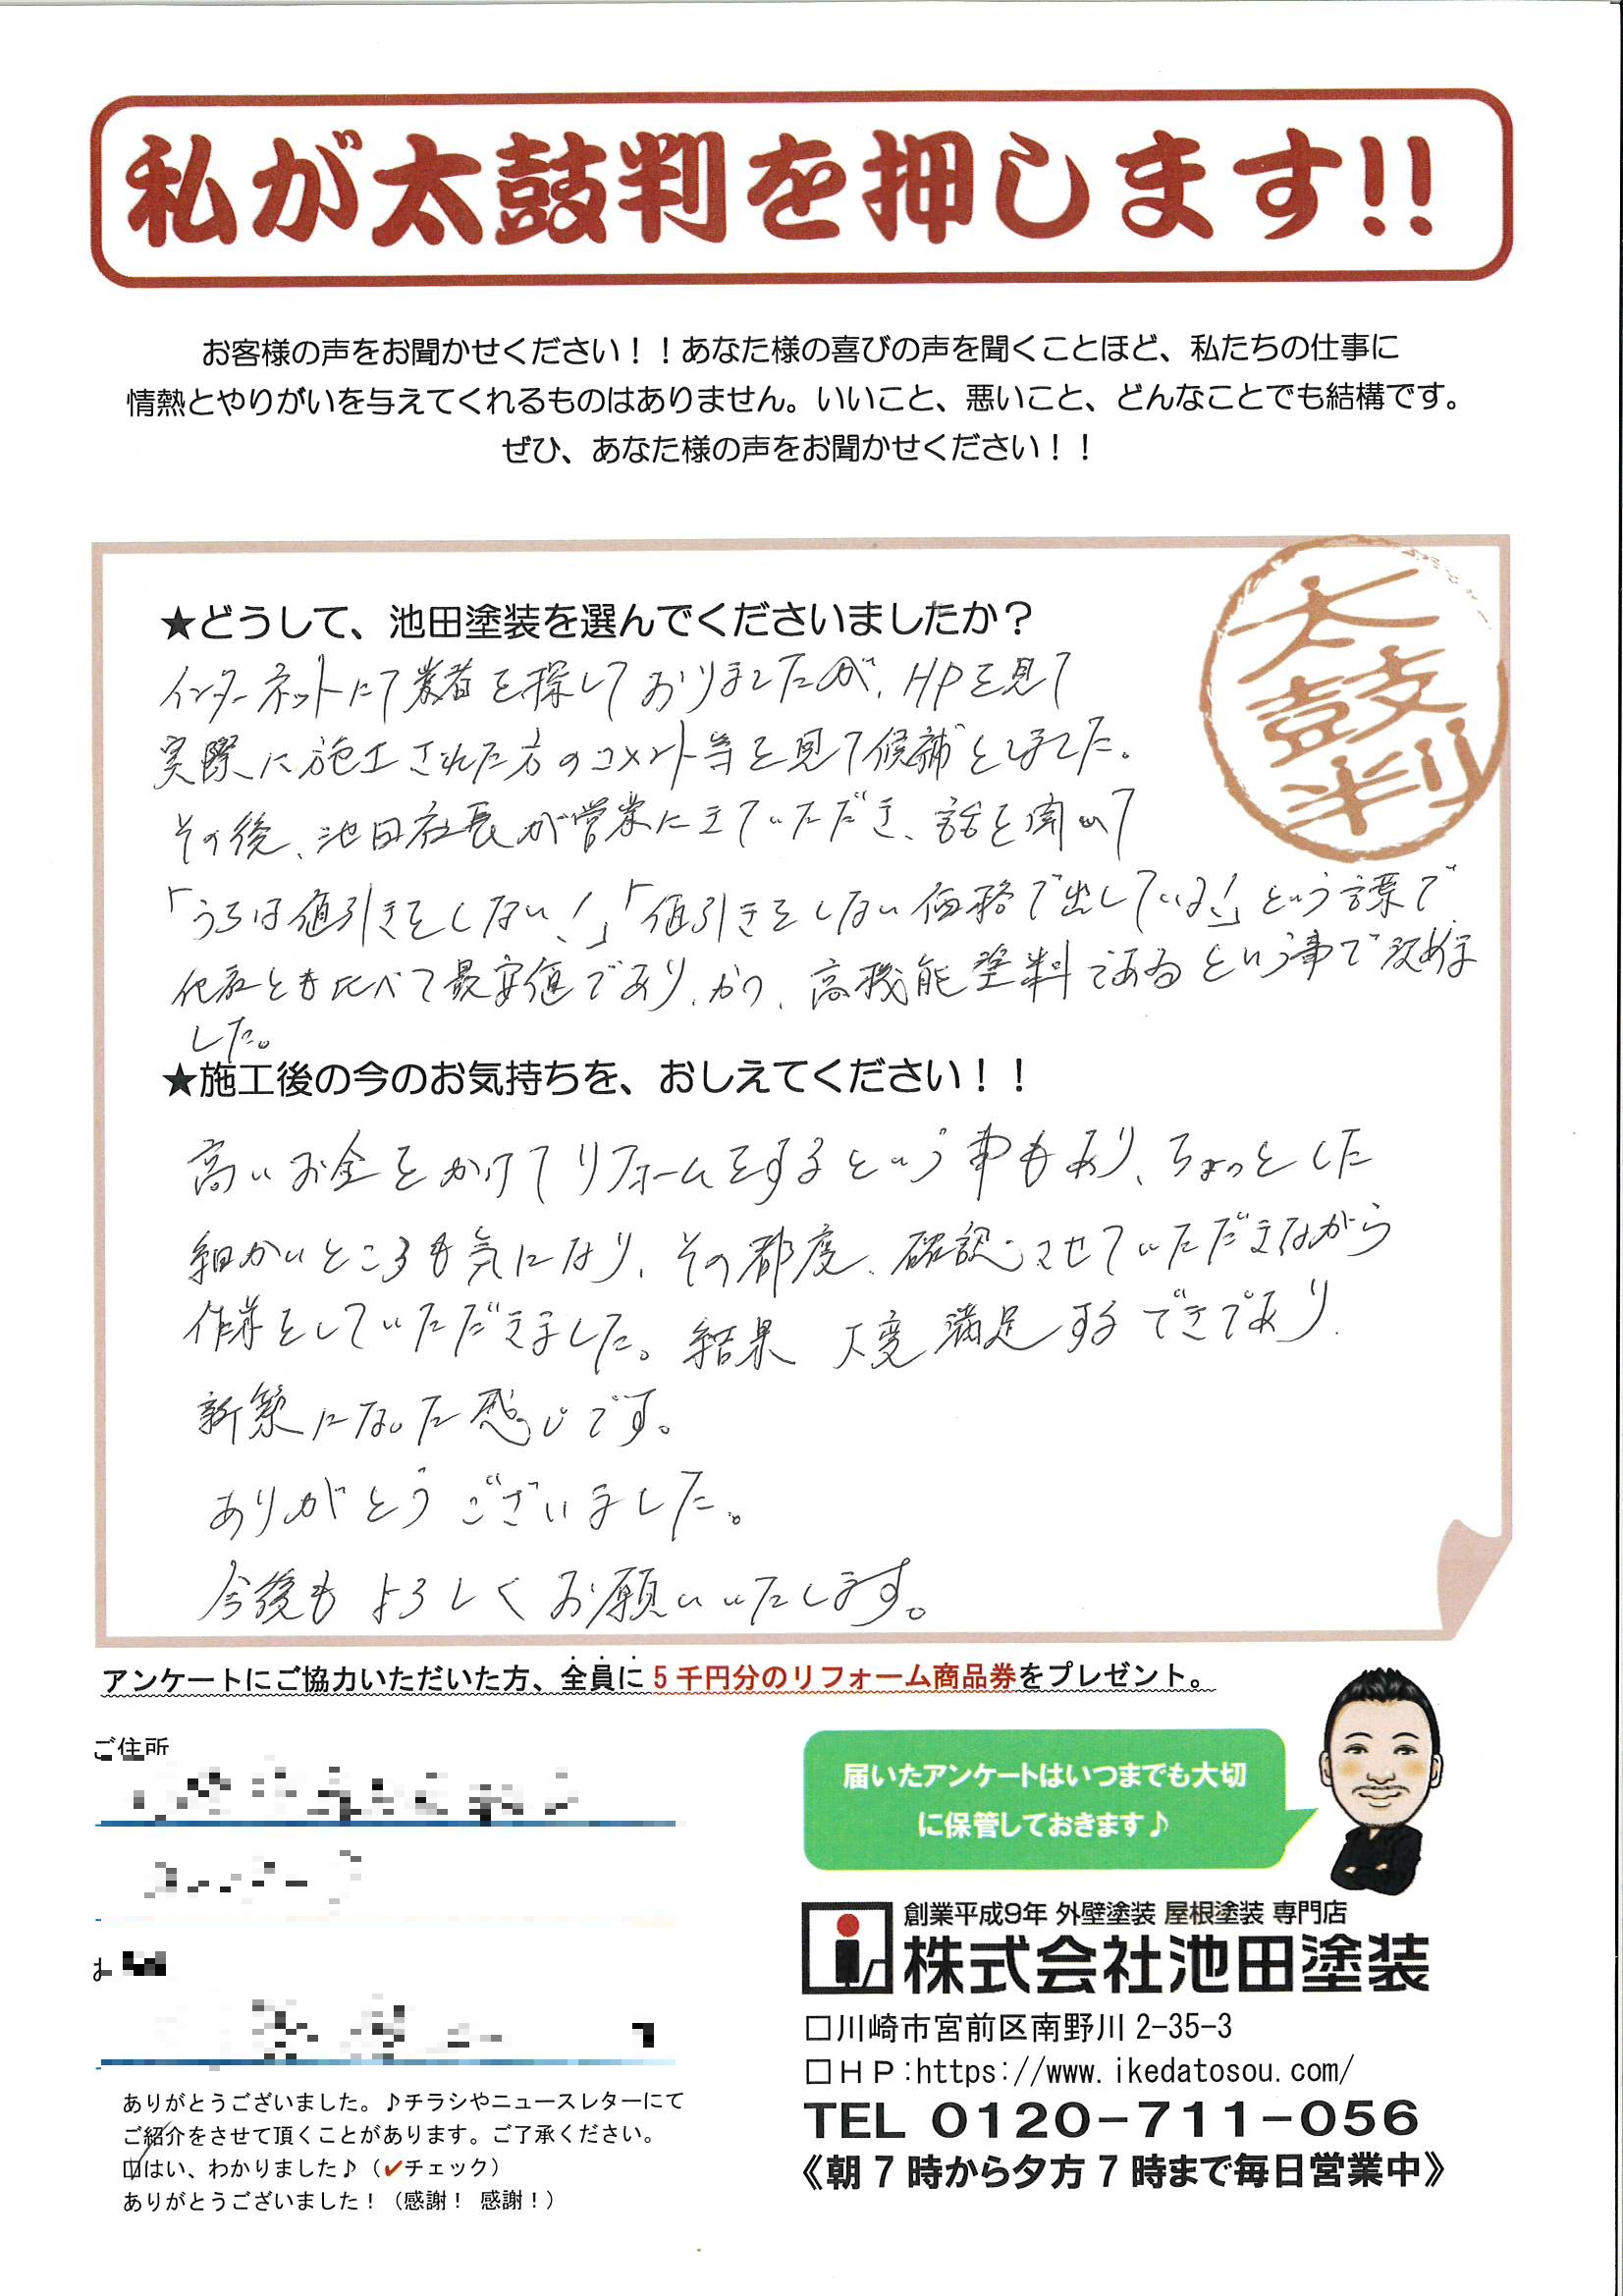 私が太鼓判を押します!!
お客様の声をお聞かせください！！あなた様の喜びの声を聞くことほど、私たちの仕事に
情熱とやりがいを与えてくれるものはありません。いいこと、悪いこと、どんなことでも結構です。
ぜひ、あなた様の声をお聞かせください！！
太鼓判
★どうして、池田塗装を選んでくださいましたか？
インターネットにて業者を探しておりましたが、HPを見て
実際に施工された方のコメント等を見て候補としました。
その後、池田社長が営業にきていただき、話を聞いて
「うちは値引きをしない！」「値引きをしない価格で出している！」という言葉で
他社とも比べて最安値であり、かつ、高機能塗料であるという事で決めま
した。
★施工後の今のお気持ちを、おしえてください！！
高いお金をかけてリフォームをするという事もあり、ちょっとした
細かいところも気になり、その都度、確認させていただきながら
作業をしていただきました。結果 大変満足するできであり、
新築になった感じです。
ありがとうございました。
今後もよろしくお願いいたします。
アンケートにご協力いただいた方、全員に5千円分のリフォーム商品券をプレゼント。
ご住所
届いたアンケートはいつまでも大切
に保管しておきます♪
創業平成9年 外壁塗装 屋根塗装 専門店
株式会社池田塗装
□川崎市宮前区南野川2-35-3
□ＨＰ:https://www.ikedatosou.com/
TEL 0120-711-056
《朝7時から夕方7時まで毎日営業中》
ありがとうございました。♪チラシやニュースレターにて
ご紹介をさせて頂くことがあります。ご了承ください。
☑はい、わかりました♪（✔チェック）
ありがとうございました！（感謝！ 感謝！）